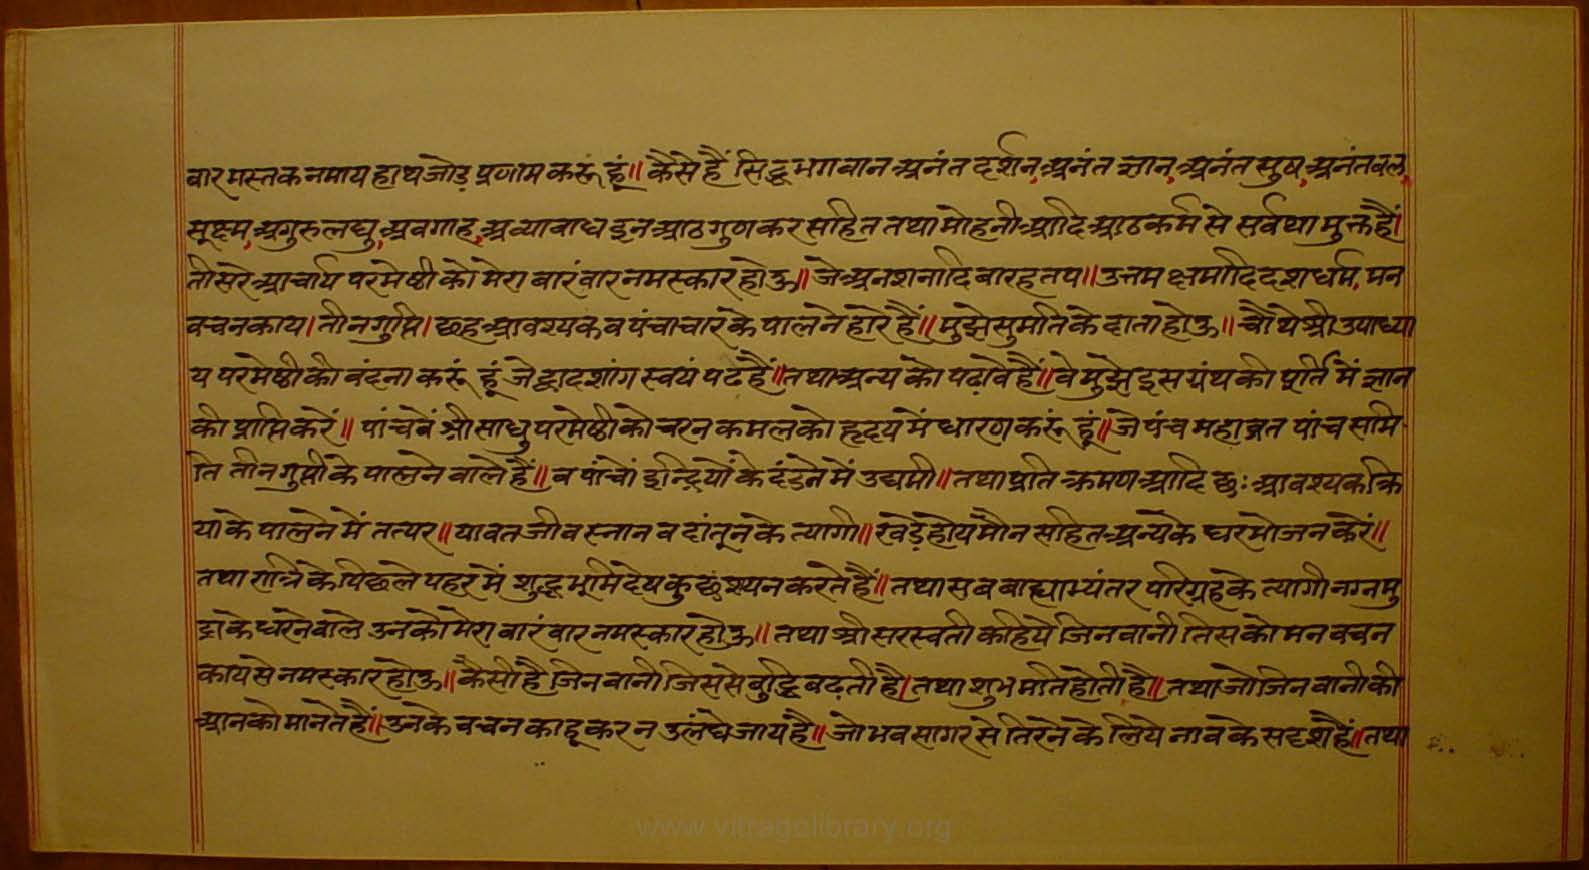 बार मस्तक नमाय हाथ जोड़ प्रणाम करूं हूं॥ कैसे हैं सिद्ध भगवान अनंत दर्शन, अनंत ज्ञान, अनंत सुष, अनंत बल,
सूक्ष्म, अगुरुलघु, अवगाह, अव्याबाध इन आठ गुण कर सहित तथा मोहनी आदि आठ कर्म से सर्वथा मुक्त हैं।
तीसरे आचार्य परमेष्ठी को मेरा बारंबार नमस्कार होऊ॥ जे अनशनादि बारह तप॥ उत्तम क्षमादि दश धर्म, मन
वचन काय। तीन गुप्ति। छह आवश्यक व पंचाचार के पालने होरे हैं॥ मुझे सुमति के दाता होऊ॥ चौथे श्री उपाध्या
य परमेष्ठी की वंदना करूं हूं जे द्वादशांग स्वयं पढें हैं॥ तथा अन्य को पढ़ावे हैं॥ वे मुझे इस ग्रंथ की पूर्ति में ज्ञान
की प्राप्ति करें॥ पांचवें श्री साधु परमेष्ठी को चरन कमल को हृदय में धारण करूं हूं॥ जे पंच महाव्रत पांच समि-
ति तीन गुप्ती के पालने वाले हैं॥ व पांचों इन्द्रियों के दंडने में उद्यमी॥ तथा प्रति क्रमण आदि छः आवश्यक क्रि
या के पालने में तत्पर॥ यावत जीव स्नान व दांतून के त्यागी॥ खड़े होय मौन सहित अन्य के घर भोजन करें॥
तथा रात्रि के पिछले पहर में शुद्ध भूमि देष कुछं श्यन करते हैं॥ तथा सब बाह्याभ्यंतर परिग्रह के त्यागी नग्न मु
द्रा के धरने वाले उनको मेरा बारंबार नमस्कार होऊ॥ तथा श्री सरस्वती कहिये जिन वानी तिस को मन वचन
काय से नमस्कार होऊ॥ कैसी है जिन वानी जिससे बुद्धि बढ़ती है। तथा शुभ मति होती है॥ तथा जो जिन वानी की
आन को मानते हैं॥ उनके वचन काहू कर न उलंघे जाय है॥ जो भव सागर से तिरने के लिये नाव के सदृश है॥ तथा
www.vitragolibrary.org